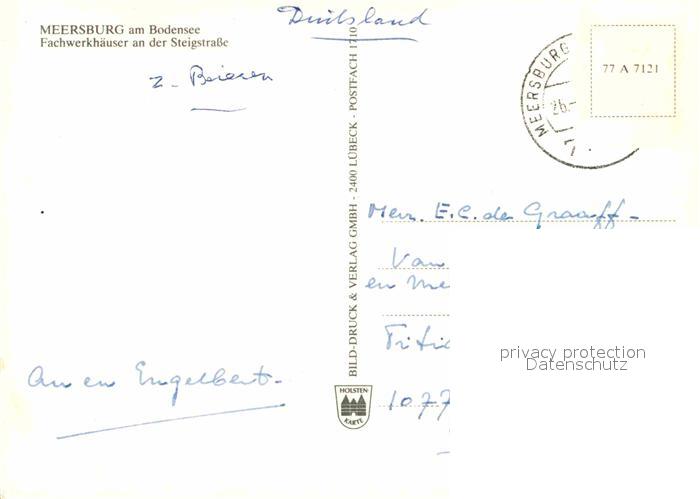 MEERSBURG am Bodensee
Fachwerkhäuser an der Steigstraße
Duitsland
z. Beieren
An en Engelbert.
BILD-DRUCK & VERLAG GMBH - 2400 LÜBECK - POSTFACH 1710
HOLSTEN-
KARTE
MEERSBURG
26.-
77 A 7121
Mevr. E.C. de Graaff-
Van
en Me
1077
privacy protection
Datenschutz